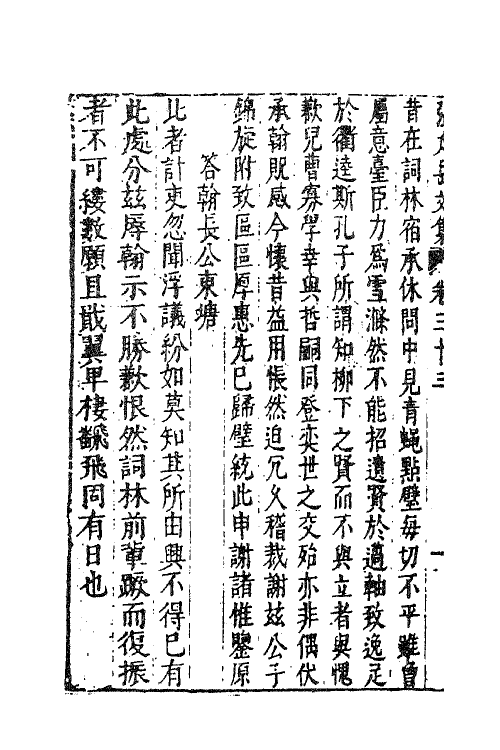 張太岳文集 卷三十三 十一
昔在詞林宿承休問中見青蝇點璧每切不平雖曾
屬意臺臣力爲雪滌然不能招遺賢於薖軸致逸足
於衢逵斯孔子所謂知柳下之賢而不與立者與愧
歉兒曹寡學幸與哲嗣同登奕世之交殆亦非偶伏
承翰貺感今懷昔益用悵然迫冗久稽裁謝兹公子
錦旋附致區區厚惠先已歸璧統此申謝諸惟鑒原
答翰長公東塘
比者計吏忽聞浮議紛如莫知其所由興不得已有
此處分兹辱翰示不勝歉恨然詞林前輩蹶而復振
者不可縷數願且戢翼卑棲飜飛固有日也